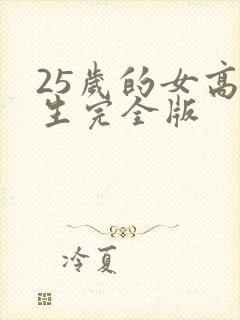 25歲的女高
生完全版
冷夏